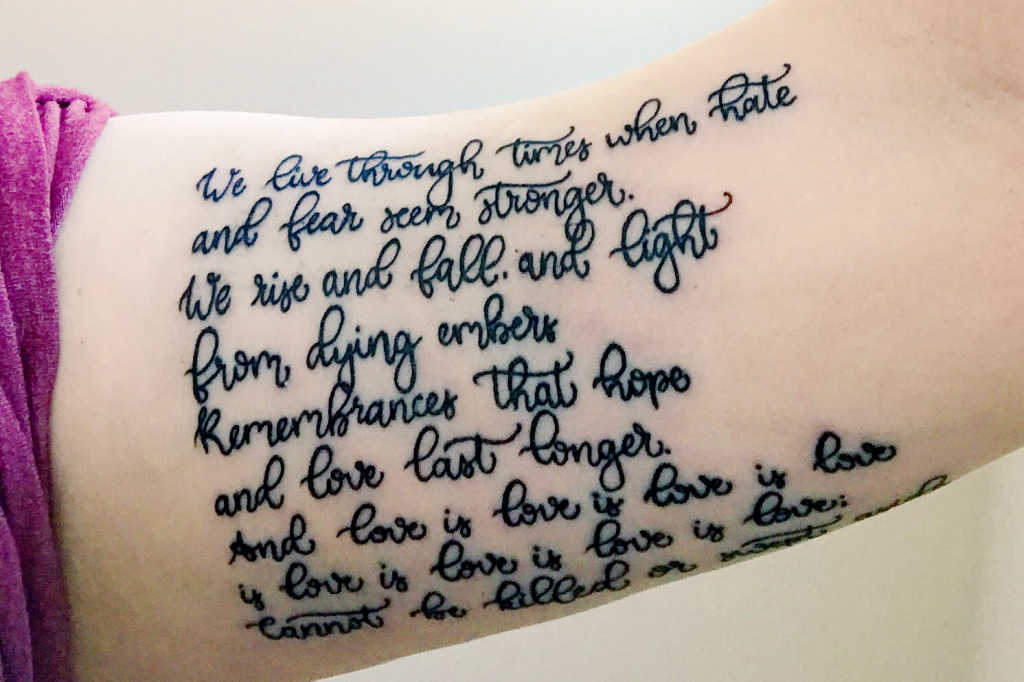 We live through times when hate
and fear seem stronger.
We rise and fall. and light
from dying embers
Remembrances that hope
and love last longer.
And love is love is love is love
is love is love is love is love:
Cannot be killed or